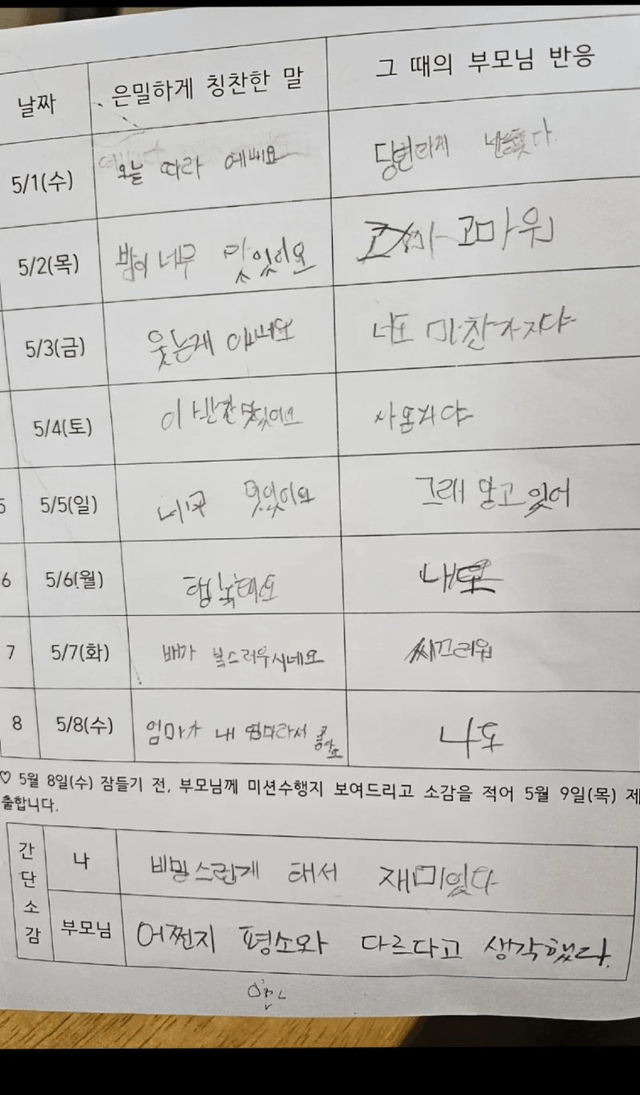 날짜 은밀하게 칭찬한 말 그 때의 부모님 반응
5/1(수) 오늘 따라 예뻐요 당번하게
5/2(목) 밥이 너무 맛있어요 고마워
5/3(금) 웃는게 이뻐요 너도 마찬가지야
5/4(토) 이 반찬 맛있어요
5 5/5(일) 맛있어요 그래 알고 있어
6 5/6(월)
7 5/7(화) 배가 복스러우시네요 씨끄러워
8 5/8(수) 엄마가 내 엄마라서 좋아요 나도
♡ 5월 8일(수) 잠들기 전, 부모님께 미션수행지 보여드리고 소감을 적어 5월 9일(목) 제
출합니다.
간단소감
나 비밍스럽게 해서 재미있다
부모님 어쩐지 평소와 다르다고 생각했다.